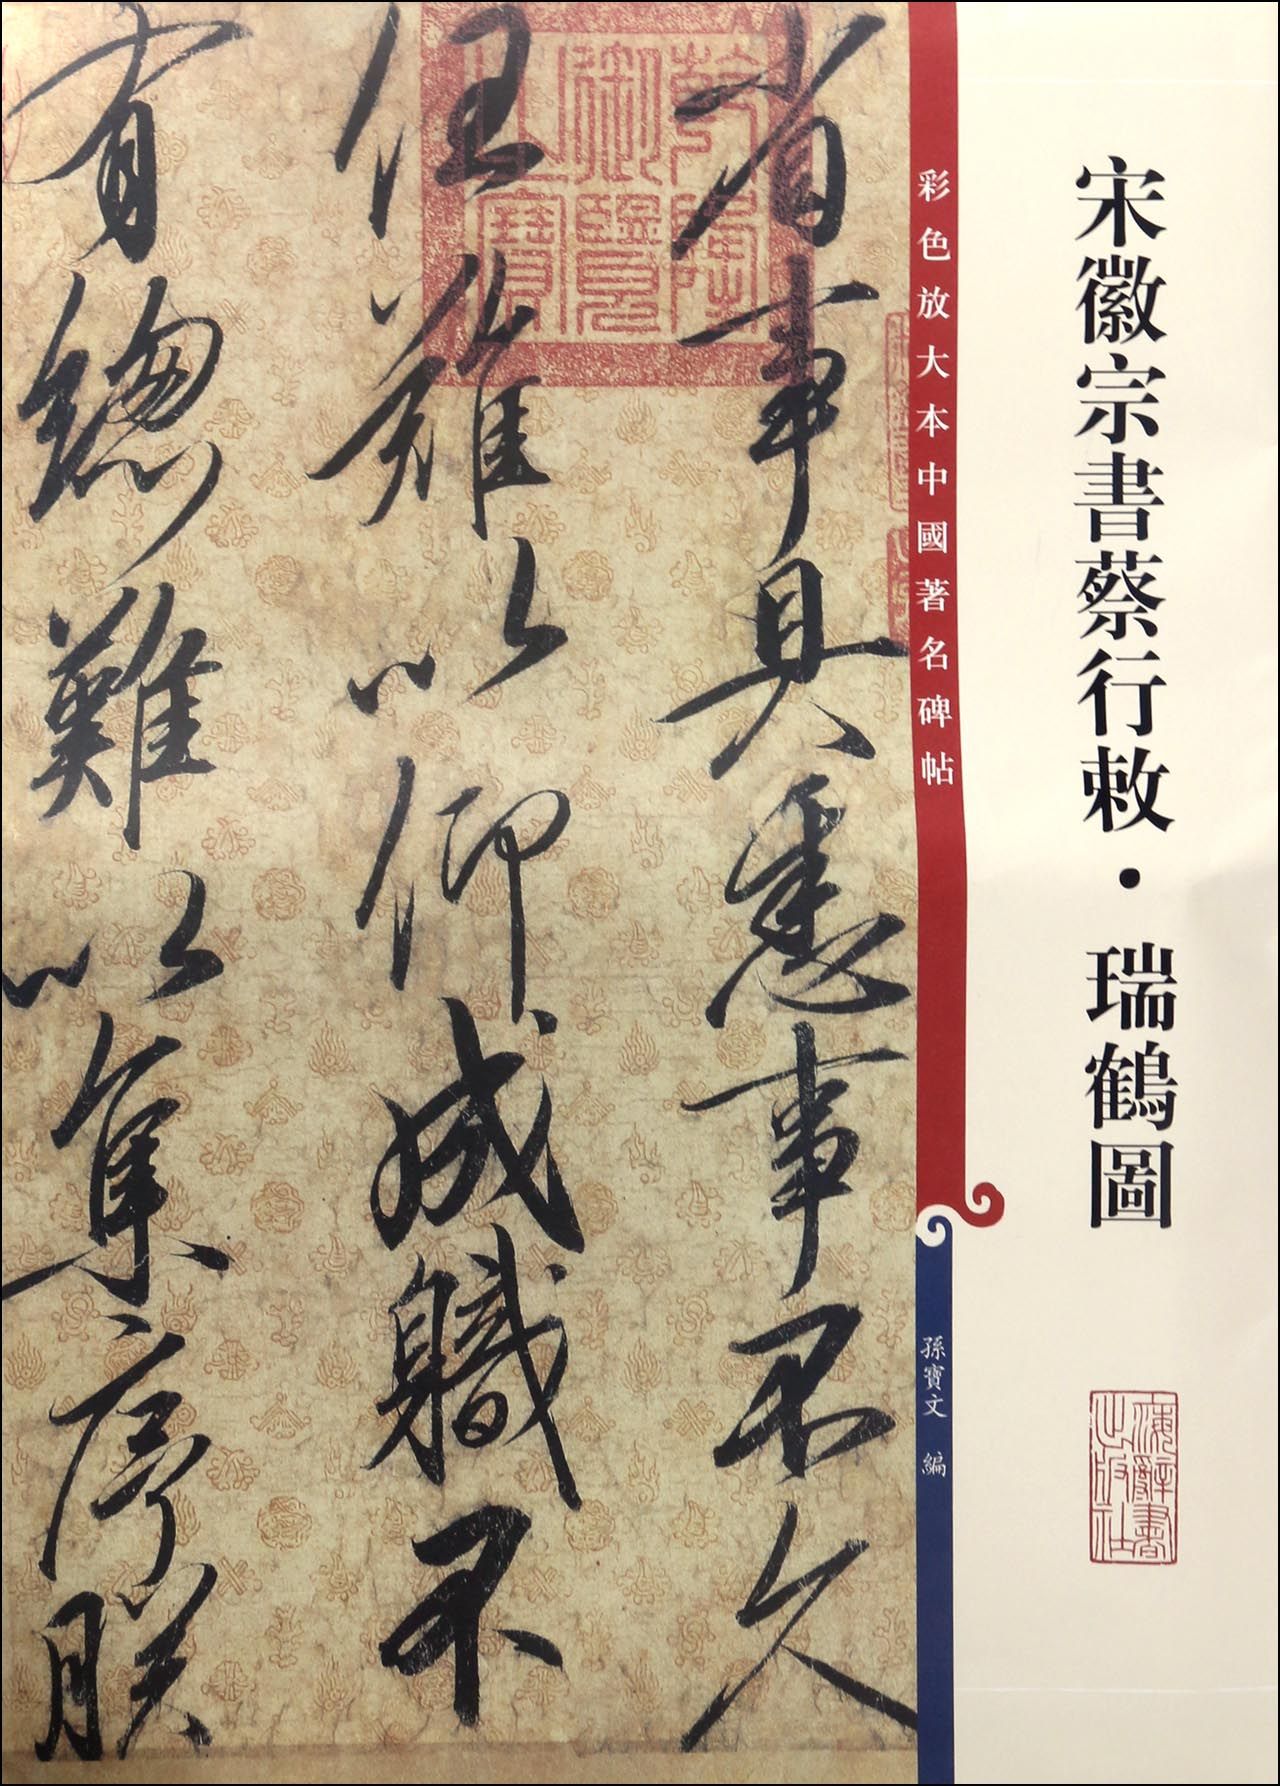 宋徽宗書蔡行敕·瑞鶴圖
彩色放大本中國著名碑帖
孫寶文 編
海辭書
出版社
省事具悉事不久
任難以仰成職不
有總難以集序朕
乾隆
御覽
之寶